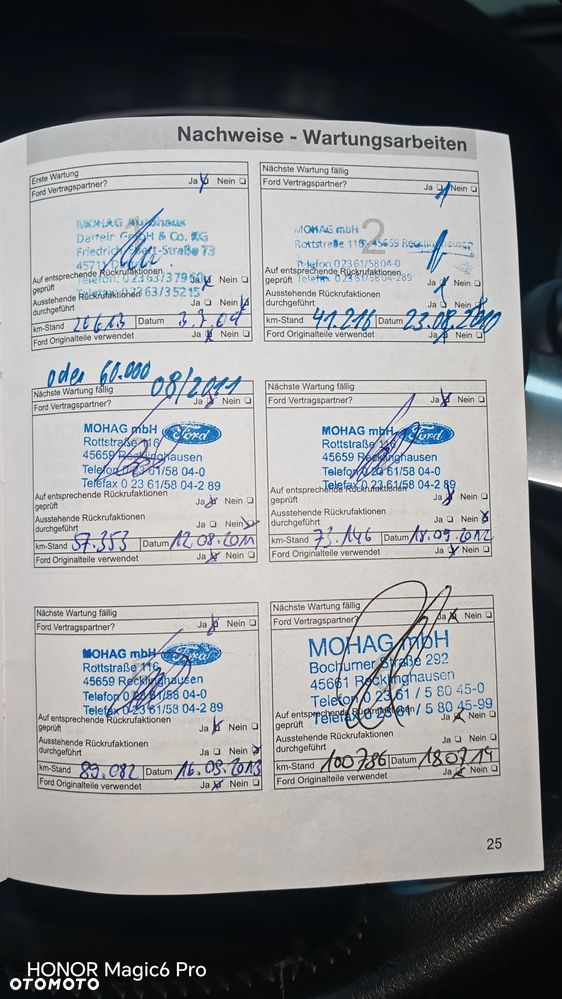 Nachweise - Wartungsarbeiten
Erste Wartung
Ford Vertragspartner? Ja Nein
MOHAG Autohaus
Datteln GmbH & Co. KG
Friedrich-Ebert-Straße 73
45711
Telefon: 0 23 63/3 79 60
02363/35215
Auf entsprechende Rückrufaktionen
geprüft Ja Nein
Ausstehende Rückrufaktionen
durchgeführt Ja Nein
km-Stand Datum
Ford Originalteile verwendet Ja Nein
Nächste Wartung fällig
Ford Vertragspartner? Ja Nein
2
MOHAG mbH
Rottstraße 116, 45659 Recklinghausen
Telefon 02361/5804-0
Telefax 02361/5804-289
Auf entsprechende Rückrufaktionen
geprüft Ja Nein
Ausstehende Rückrufaktionen
durchgeführt Ja Nein
km-Stand 41.216 Datum 23.08.2010
Ford Originalteile verwendet Ja Nein
oder 60.000
08/2011
Nächste Wartung fällig
Ford Vertragspartner? Ja Nein
MOHAG mbH Ford
Rottstraße 116
45659 Recklinghausen
Telefon 0 23 61/58 04-0
Telefax 0 23 61/58 04-2 89
Auf entsprechende Rückrufaktionen
geprüft Ja Nein
Ausstehende Rückrufaktionen
durchgeführt Ja Nein
km-Stand 57.353 Datum 12.08.2011
Ford Originalteile verwendet Ja Nein
Nächste Wartung fällig
Ford Vertragspartner? Ja Nein
MOHAG mbH Ford
Rottstraße 116
45659 Recklinghausen
Telefon 0 23 61/58 04-0
Telefax 0 23 61/58 04-2 89
Auf entsprechende Rückrufaktionen
geprüft Ja Nein
Ausstehende Rückrufaktionen
durchgeführt Ja Nein
km-Stand 73.146 Datum 18.09.2012
Ford Originalteile verwendet Ja Nein
Nächste Wartung fällig
Ford Vertragspartner? Ja Nein
MOHAG mbH Ford
Rottstraße 116
45659 Recklinghausen
Telefon 0 23 61/58 04-0
Telefax 0 23 61/58 04-2 89
Auf entsprechende Rückrufaktionen
geprüft Ja Nein
Ausstehende Rückrufaktionen
durchgeführt Ja Nein
km-Stand 89.082 Datum 16.09.2013
Ford Originalteile verwendet Ja Nein
Nächste Wartung fällig
Ford Vertragspartner? Ja Nein
MOHAG mbH
Bochumer Straße 292
45661 Recklinghausen
Telefon 0 23 61 / 5 80 45-0
Telefax 0 23 61 / 5 80 45-99
Auf entsprechende Rückrufaktionen
geprüft Ja Nein
Ausstehende Rückrufaktionen
durchgeführt Ja Nein
km-Stand 100786 Datum 180714
Ford Originalteile verwendet Ja Nein
25
HONOR Magic6 Pro
OTOMOTO